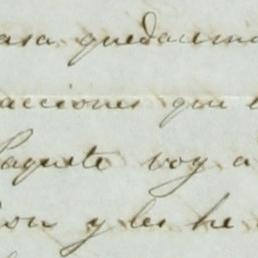 casa quedar
acciones que
Paquete voy a
ion y les he